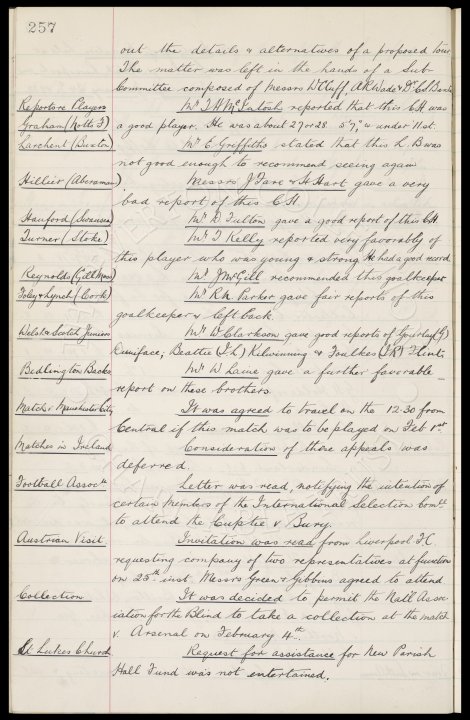 257
out the details & alternatives of a proposed tour
The matter was left in the hands of a Sub-
Committee composed of Messrs W Cuff, A R Wade & Dr C S Baxter
Reports re Players Mr T H McIntosh reported that this C H was
Graham (Notts F) a good player. He was about 27 or 28 5' 7½" & under 11 st.
Larchent (Buxton) Mr E Griffiths stated that this L B was
not good enough to recommend seeing again
Hillier (Aberaman) Messrs J Fare & H Hart gave a very
bad report of this C H.
Hanford (Swansea) Mr D Fulton gave a good report of this C H.
Turner (Stoke) Mr T Kelly reported very favorably of
this player who was young & strong He had a good record
Reynolds (Gill Moss) Mr J McGill recommended this goalkeeper
Foley & Lynch (Cork) Mr R M Parker gave fair reports of this
goalkeeper & left back.
Welsh & Scotch Juniors Mr W Clarkson gave good reports of Gourlay (G)
Duniface; Beattie (I L) Kilwinning & Foulkes (I R) Flint.
Bedlington Backs Mr W Laine gave a further favorable
report on these brothers.
Match v Manchester City It was agreed to travel on the 12.30 from
Central if this match was to be played on Feb 1st.
Matches in Ireland Consideration of these appeals was
deferred.
Football Assoctn Letter was read, notifying the intention of
certain Members of the International Selection Comtt
to attend the Cuptie v Bury.
Austrian Visit Invitation was read from Liverpool F.C.
requesting company of two representatives at function
on 25th inst. Messrs Green & Gibbins agreed to attend
Collection It was decided to permit the Natl Assoc-
iation for the Blind to take a collection at the match
v. Arsenal on February 4th.
St Lukes Church Request for assistance for New Parish
Hall Fund was not entertained.